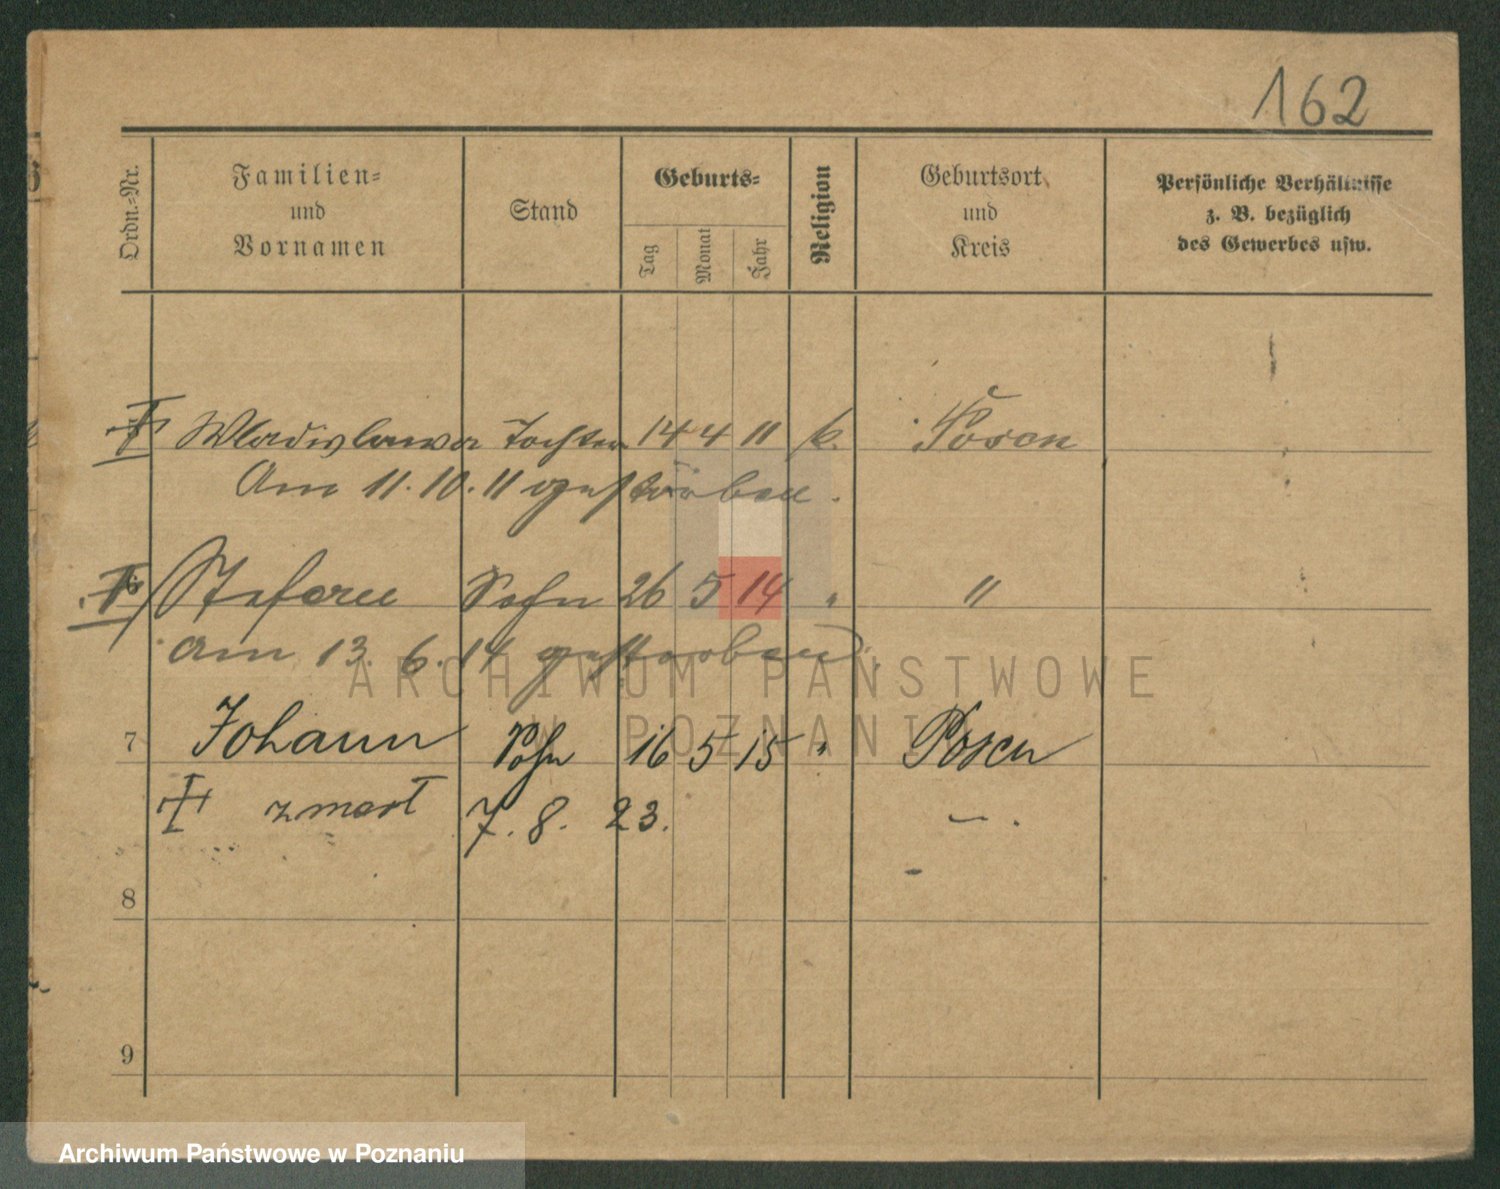 162
Ordn.-Nr.
Familien-
und
Vornamen
Stand
Geburts-
Tag
Monat
Jahr
Religion
Geburtsort
und
Kreis
Persönliche Verhältnisse
z. B. bezüglich
des Gewerbes usw.
Wladislawa Tochter 14 4 11 k. Posen
Am 11. 10. 11 gestorben.
6 Stefan Sohn 26 5 14 " "
am 13. 6. 14 gestorben.
7 Johann Sohn 16 5 15 " Posen
zmarł 7. 8. 23.
8
9
ARCHIWUM PAŃSTWOWE
W POZNANIU
Archiwum Państwowe w Poznaniu